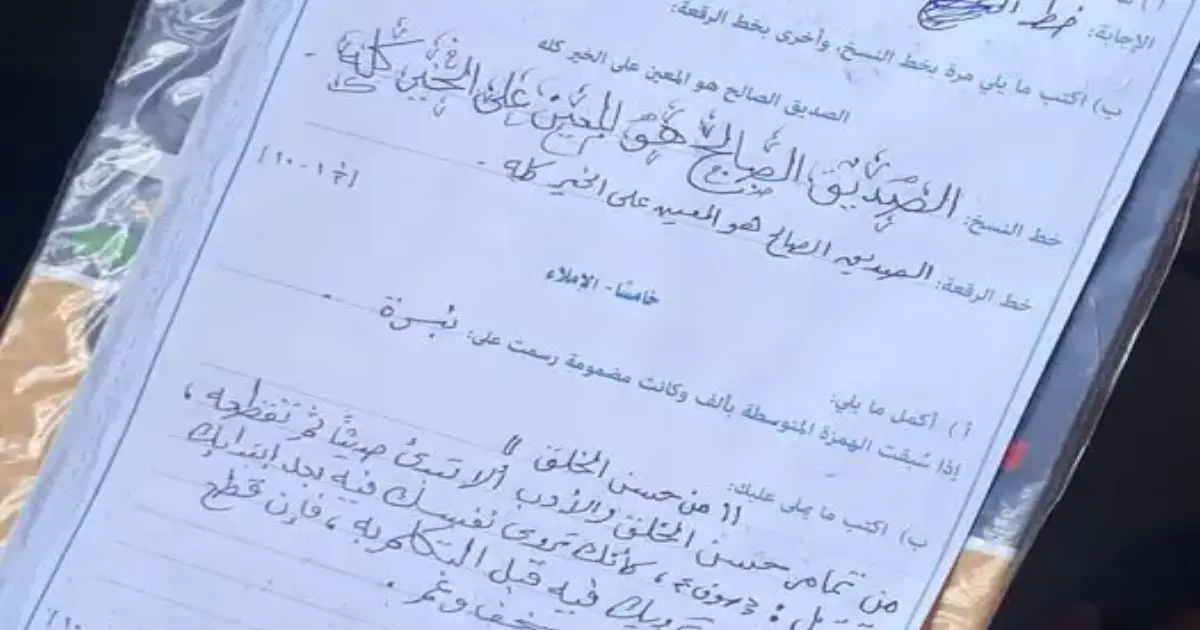 الإجابة: خط
ب) اكتب ما يلي مرة بخط النسخ، وأخرى بخط الرقعة:
الصديق الصالح هو المعين على الخير كله
خط النسخ: الصديق الصالح هو المعين على الخير كله.
خط الرقعة: الصديق الصالح هو المعين على الخير كله.
(١٠-١٠)
خامسًا- الإملاء
أ) أكمل ما يلي:
إذا سُبقت الهمزة المتوسطة بألف وكانت مضمومة رسمت على: نبرة.
ب) اكتب ما يملى عليك:
" من حسن الخلق "
من تمام حسن الخلق والأدب ألا تبدئ حديثًا ثم تقطعه،
كأنك تروي نفسك فيه بعد ابتدائك
فيه قبل التكلم به، فإن قطع